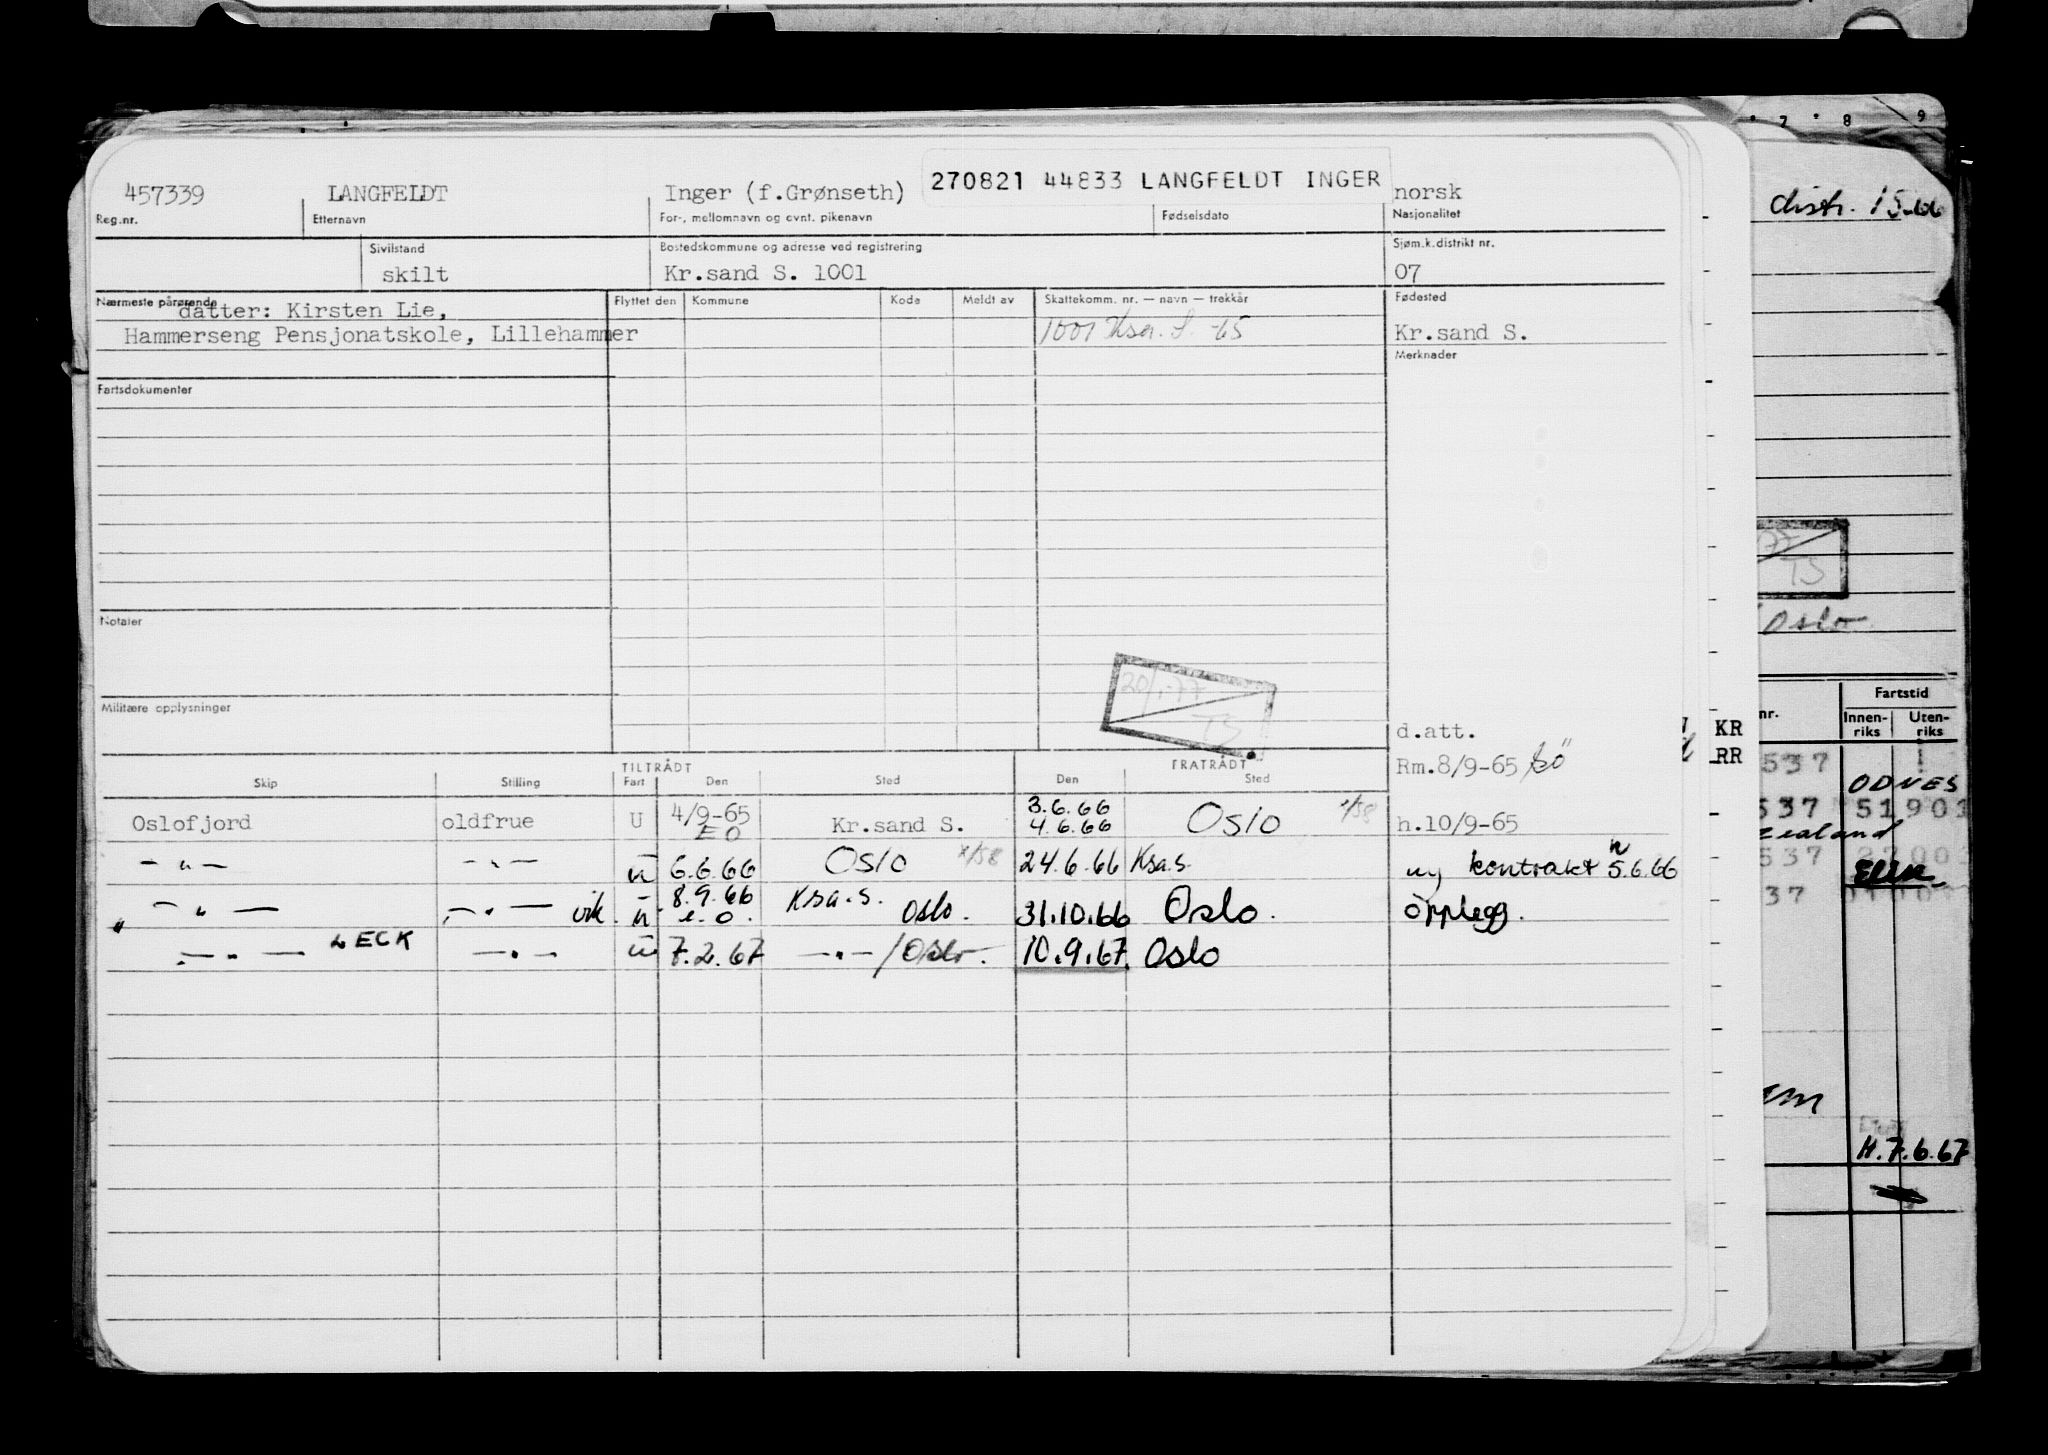 7 8 9
457339 LANGFELDT Inger (f.Grønseth) 270821 44833 LANGFELDT INGER norsk
Reg.nr. Etternavn For-, mellomnavn og evnt. pikenavn Fødselsdato Nasjonalitet
distr. 15-66
Sivilstand Bostedskommune og adresse ved registrering Sjøm.k.distrikt nr.
skilt Kr.sand S. 1001 07
Nærmeste pårørende Flyttet den Kommune Kode Meldt av Skattekomm. nr. — navn — trekkår Fødested
datter: Kirsten Lie,
Hammerseng Pensjonatskole, Lillehammer 1001 Ksa. S. -65 Kr.sand S.
Merknader
Fartsdokumenter
77
TS
Notater
Oslo
20/1-77
TS
Militære opplysninger
nr. Fartstid
Innen-riks Uten-riks
d.att.
KR
RR
TILTRÅDT FRATRÅDT
Rm.8/9-65
Skip Stilling Fart Den Sted Den Sted
537
ODNES
Oslofjord oldfrue U 4/9-65 EO Kr.sand S. 3.6.66 4.6.66 Oslo 1/58 h.10/9-65
537 51901
zealand
— " — — " — u 6.6.66 Oslo 1/58 24.6.66 Ksa.s. ny kontrakt n 5.6.66
537
" — " — — " — vik. u 8.9.66 e.o. Ksa.s. Oslo. 31.10.66 Oslo. opplegg.
37
— " — LECK — " — u 7.2.67 — " — / Oslo. 10.9.67 Oslo
H.7.6.67